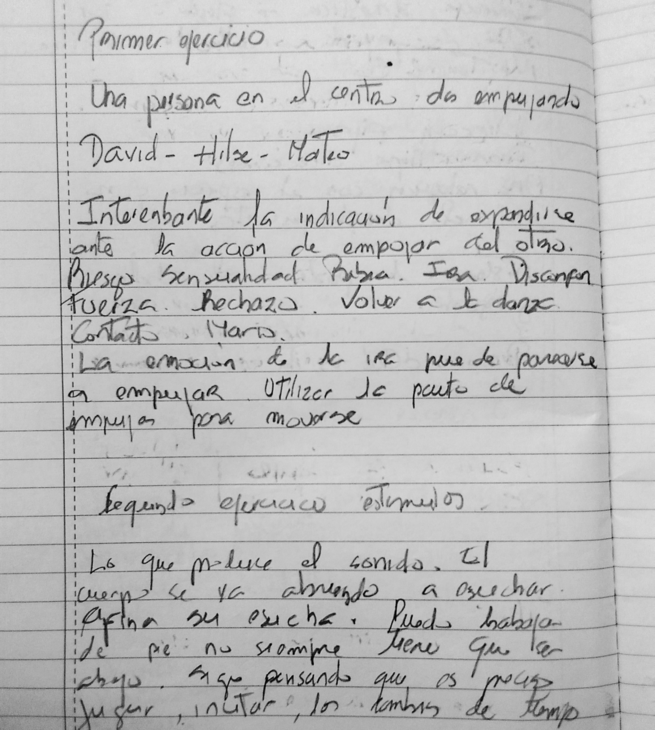 Primer ejercicio
Una persona en el centro dos empujando
David - Hilse - Mateo
Interesante la indicación de expandirse
ante la accion de empujar del otro.
Riesgo Sensualidad Rabia. Ira.
Fuerza. Rechazo. Volver a la danza
Contacto. Mario.
La emoción de la ira puede parecerse
a empujar. Utilizar la pauta de
empujar para moverse
Segundo ejercicio estimulos.
Lo que produce el sonido. El
cuerpo se va abriendo a escuchar.
Afina su escucha. Puedo trabajar
de pie no siempre tiene que ser
abajo. Sigo pensando que es preciso
jugar, incitar, los cambios de tiempo